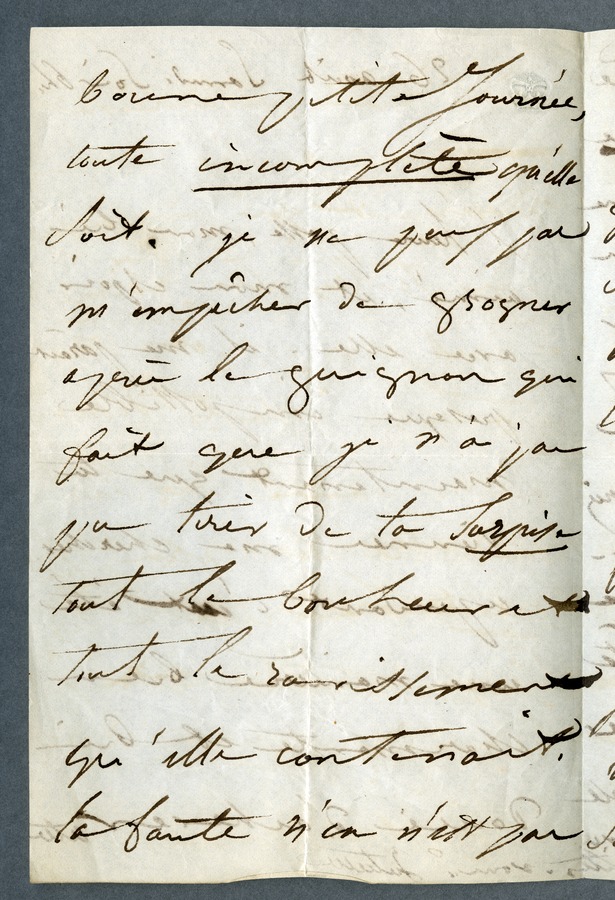 bonne petite journée,
toute incomplète qu'elle
soit. je ne peux pas
m'empêcher de grogner
après le guignon qui
fait que je n'ai pas
pu tirer de ta surprise
tout le bonheur et
tout le ravissement
qu'elle contenait.
la faute n'en n'est pas